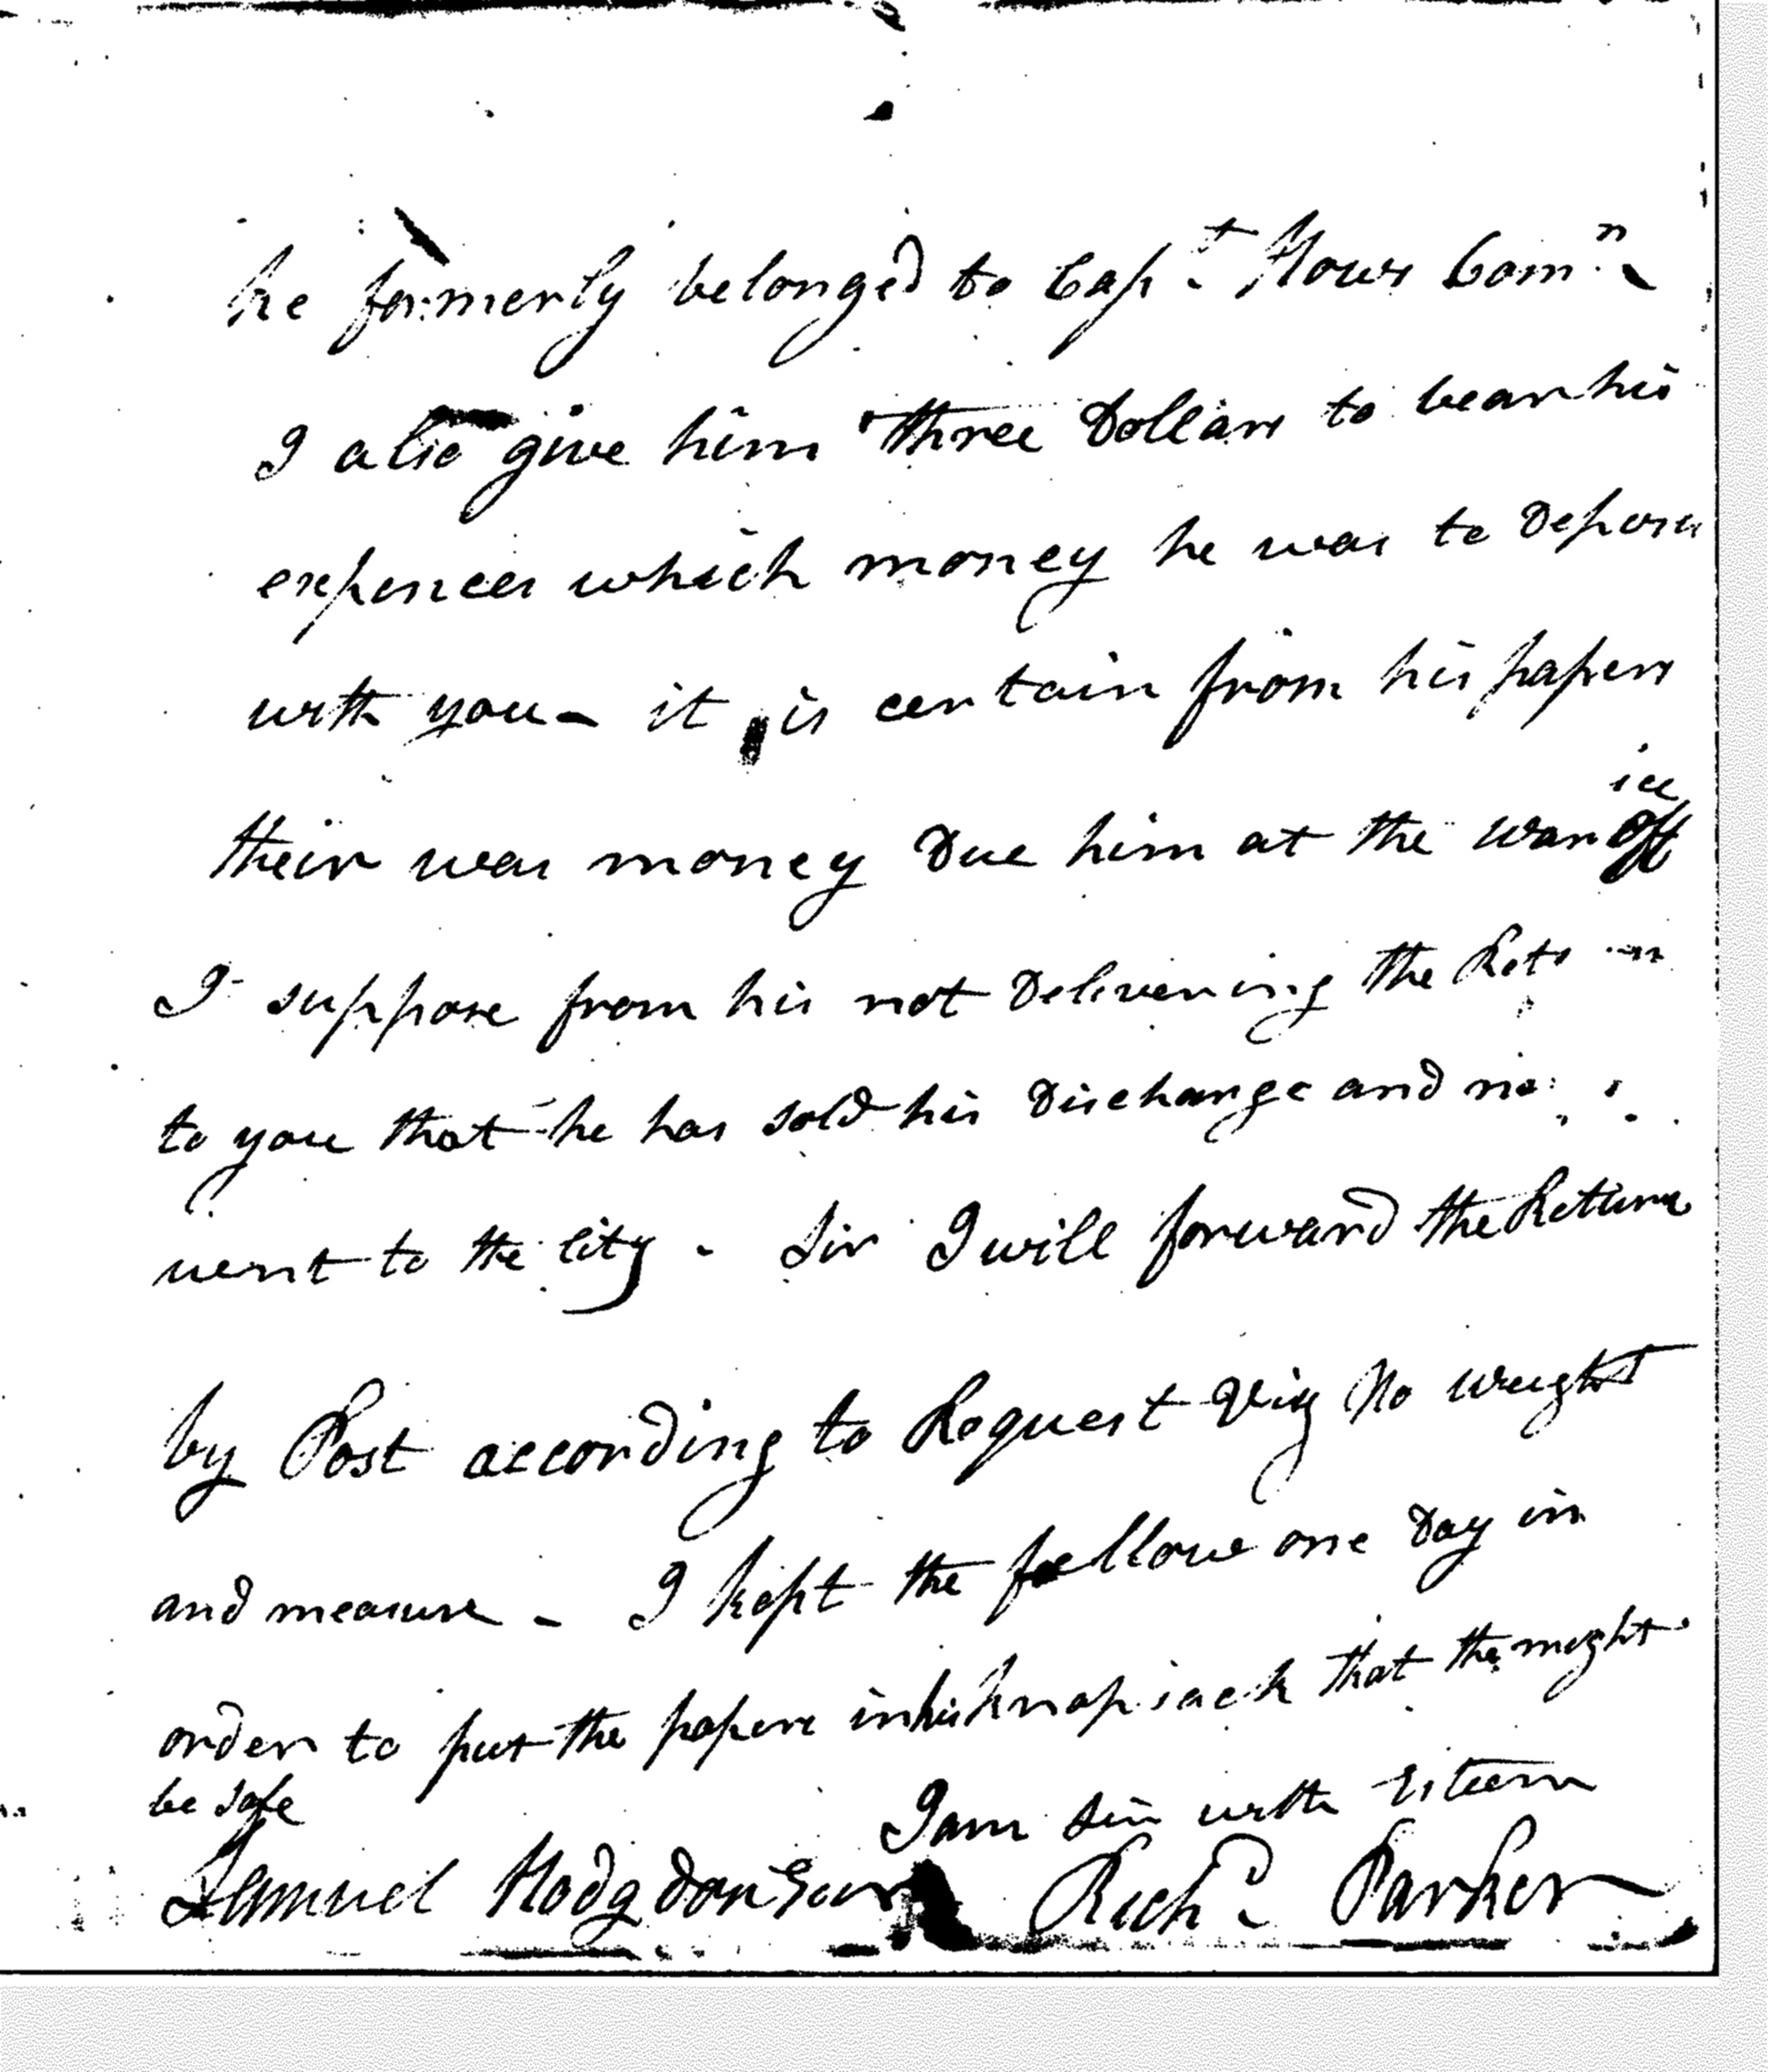 he formerly belonged to Capt. Hows Comn.
I also give him three Dollars to bear his
expences which money he was to Depose
with you - it is certain from his papers
their was money Due him at the war office
I suppose from his not Delivering the
to you that he has sold his Discharge and
went to the City - Sir I will forward the Return
by Post according to Request Viz No weight
and measure - I kept the fellow one Day in
order to put the papers in his knapsack that the might
be safe
I am Sir with Esteem
Samuel Hodgdon Richd. Parker